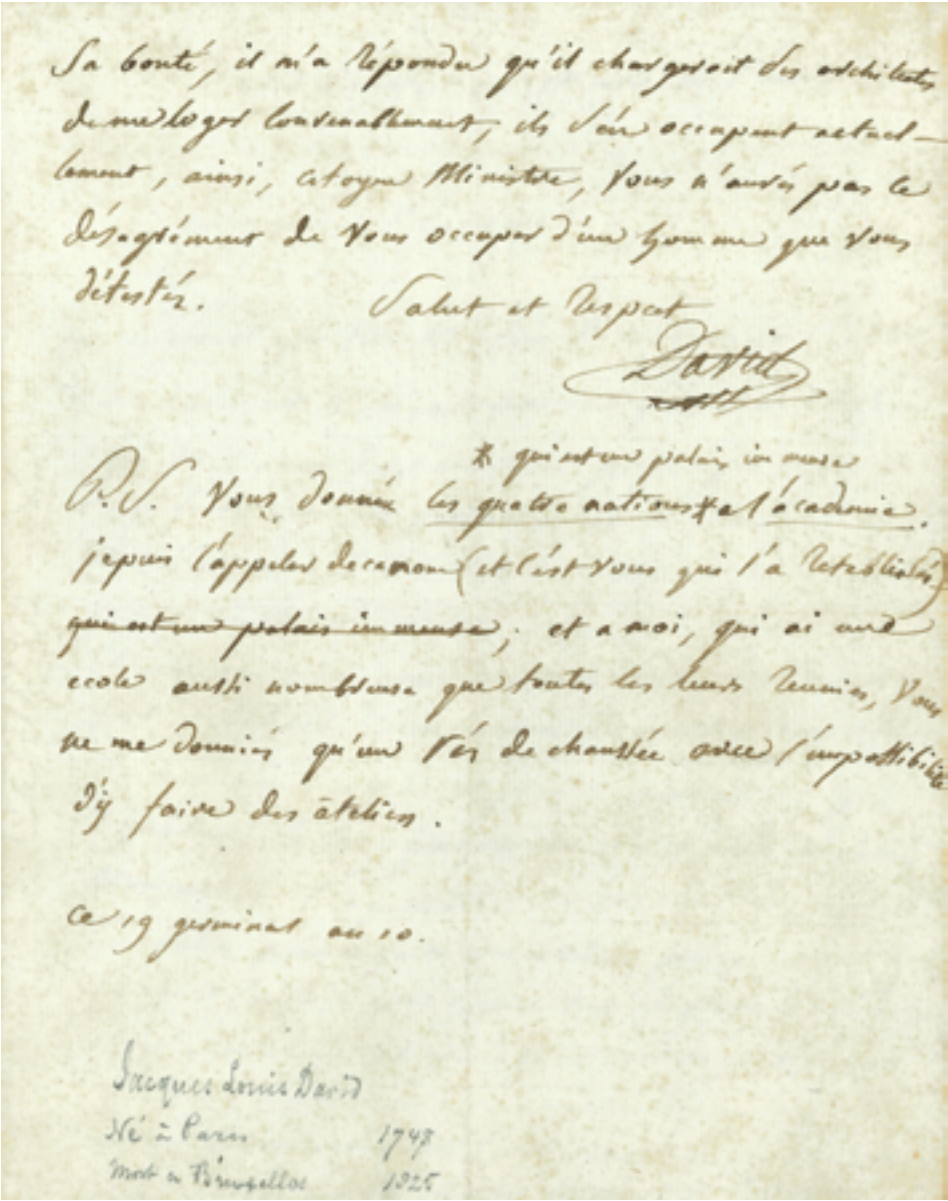 Sa bonté, il m'a répondu qu'il chargeroit des architectes
de me loger convenablement, ils s'en occupent actuel-
lement, ainsi, citoyen Ministre, vous n'aurés pas le
désagrément de vous occuper d'un homme que vous
détestéz.
Salut et respect
David
* qui est un palais immense
P.S. vous donnéz les quatre nations * a l'académie.
je puis l'appeler de ce nom (et c'est vous qui l'a
qui est un palais immense ; et a moi, qui ai une
ecole aussi nombreuse que toutes les leurs reunies, vous
ne me donniés qu'un rés de chaussée avec l'impossibilité
d'y faire des ateliers.
ce 19 germinal an 10.
Jacques Louis David
Né à Paris 1748
Mort à Bruxelles 1825